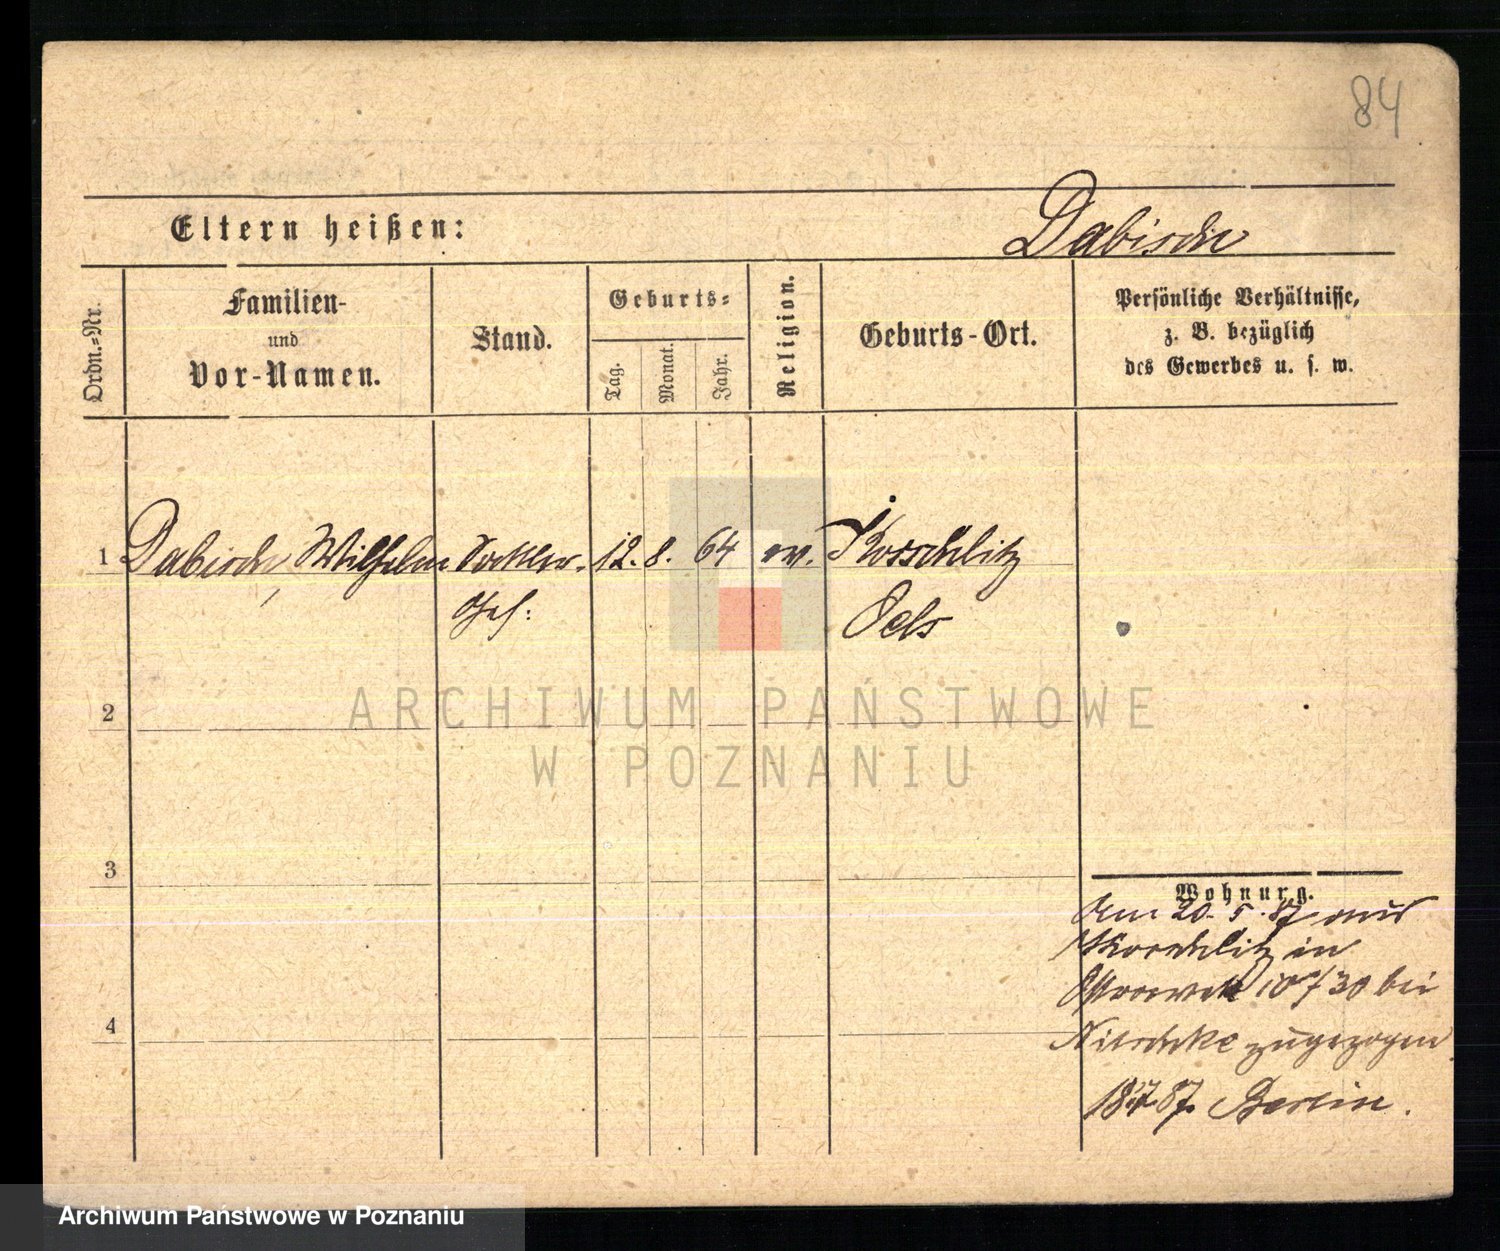 84
Eltern heißen:
Dabisch
Ordn.=Nr.
Familien-
und
Vor-Namen.
Stand.
Geburts=
Tag.
Monat.
Jahr.
Religion.
Geburts-Ort.
Persönliche Verhältnisse,
z. B. bezüglich
des Gewerbes u. s. w.
1 Dabisch, Wilhelm Sattler. 12. 8. 64 ev. Korschlitz
Ges:
Oels
2
ARCHIWUM PAŃSTWOWE
W POZNANIU
3
Wohnung.
Am 20. 5. 87 aus
Korschlitz in
10/30 bei
Nitschke zugezogen
87. Berlin.
4
Archiwum Państwowe w Poznaniu